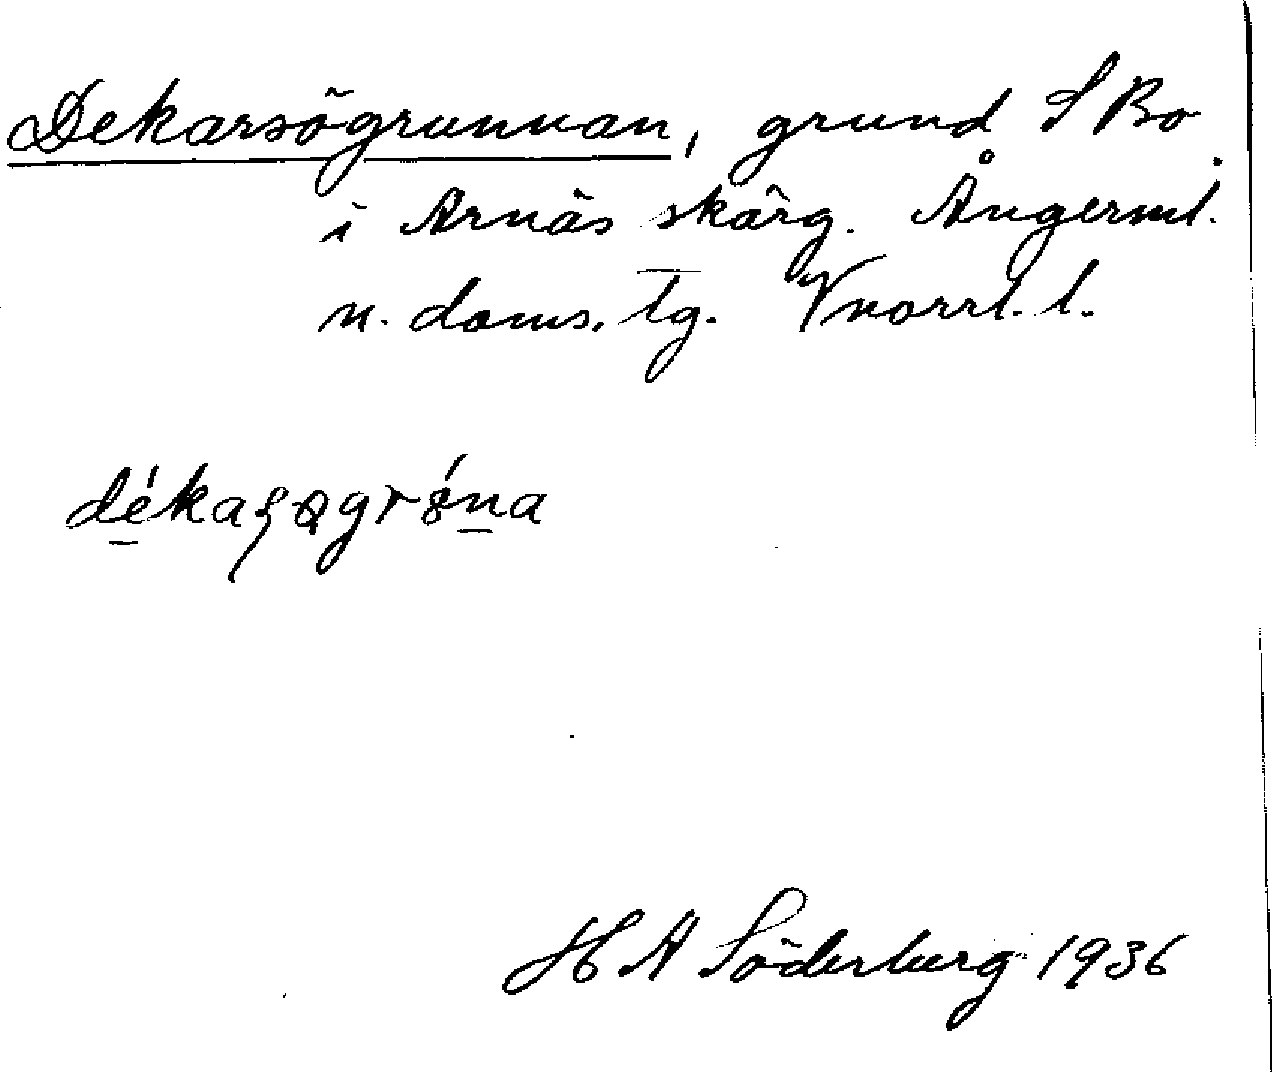 Dekarsögrunnan, grund S Bo
i Arnäs skärg. Ångerml.
n. doms. tg. Vnorrl. l.
dékaʂøgrǿna
H A Söderberg 1936